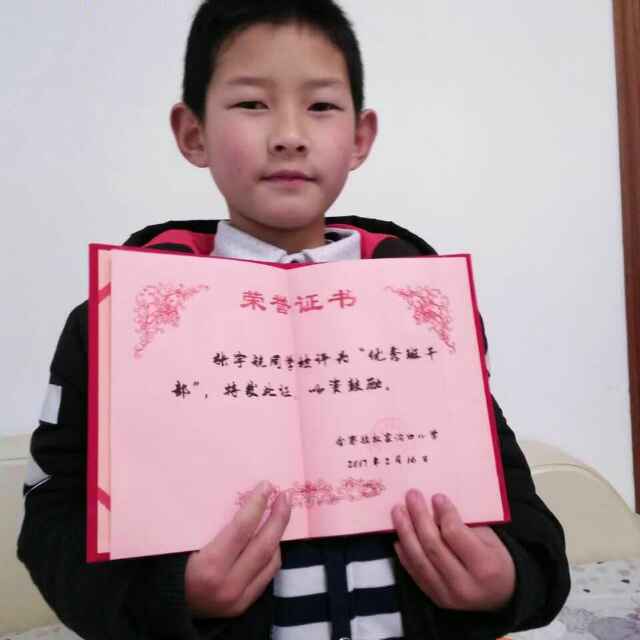 荣誉证书
张宇航同学被评为“优秀班干
部”，特发此证，以资鼓励。
张家沟口小学
2017年2月16日